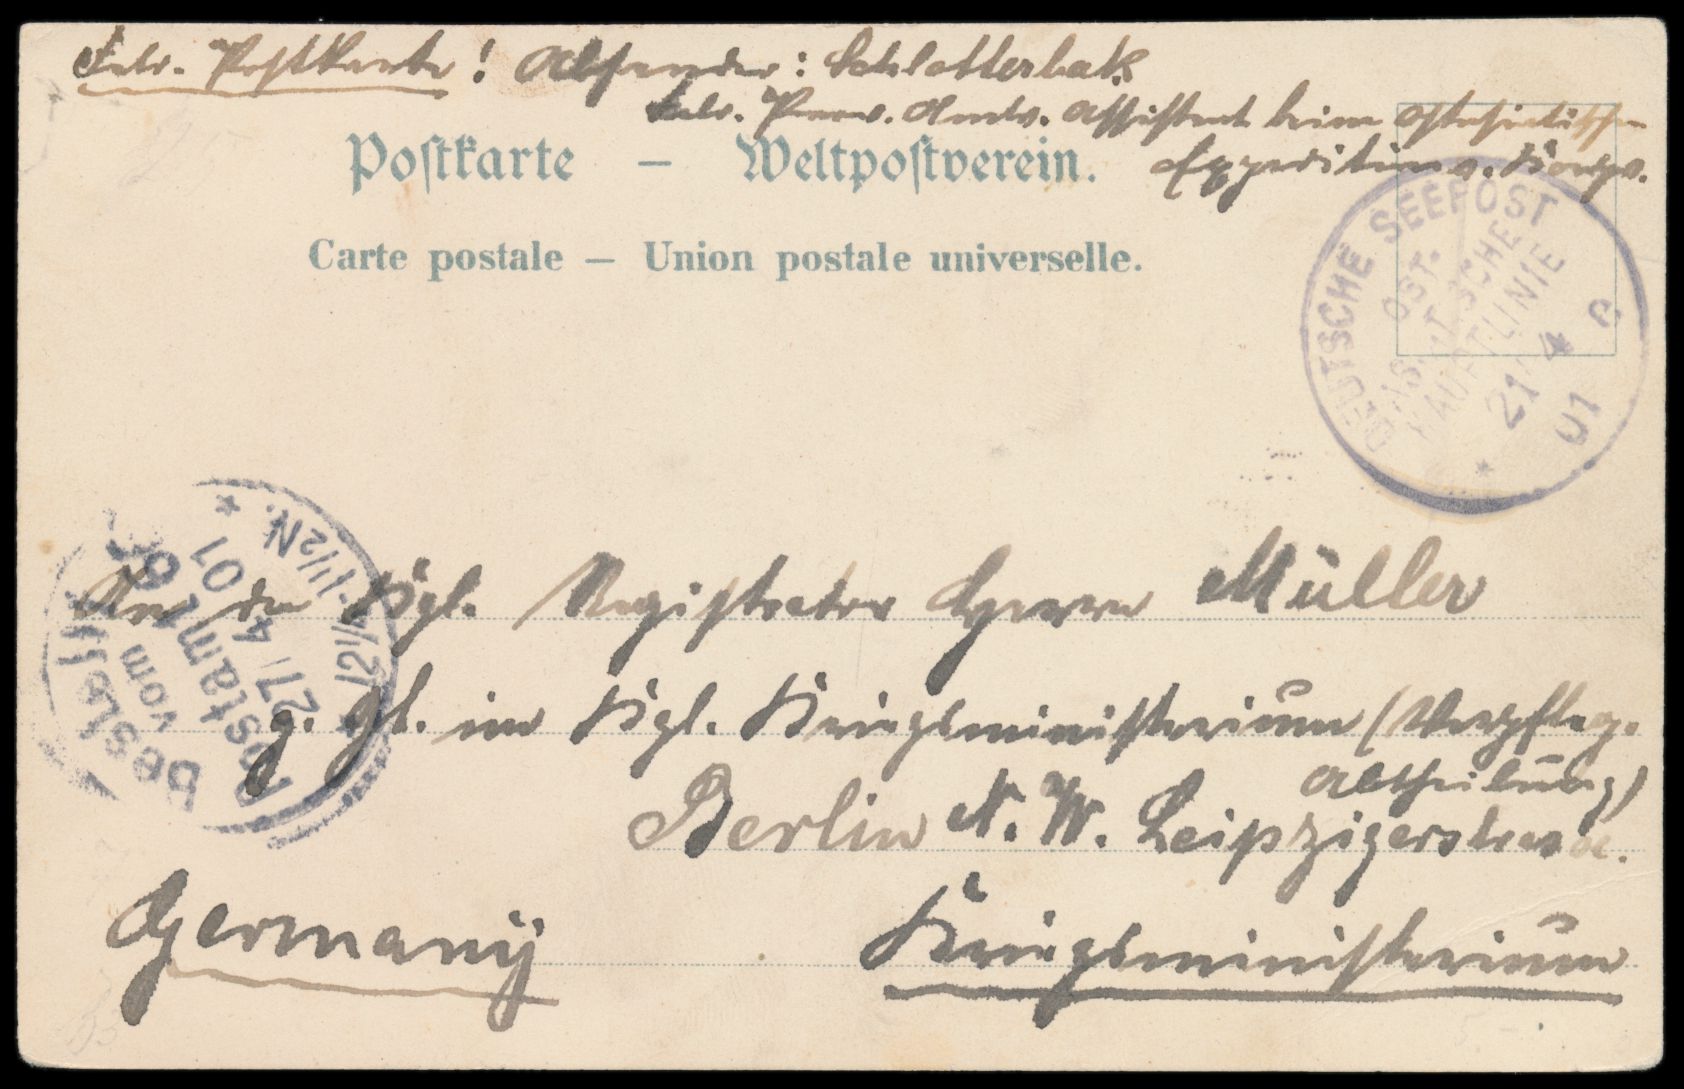 Feld-Postkarte! Absender: Schlotterbak
Feld-Prov. Amts. Assistent beim Ostasiatischen
Expeditions-Korps.
Postkarte – Weltpostverein.
Carte postale – Union postale universelle.
DEUTSCHE SEEPOST
OST-
ASIATISCHE
HAUPTLINIE
21 4 01 c
Bestellt
vom
Postamt
27/4 01
12½-1½N.
An den Kgl. Registrator Herrn Müller
im Kgl. Kriegsministerium (Verpfleg.
Abtheilung)
Berlin N.W. Leipzigerstrasse.
Germany
Kriegsministerium